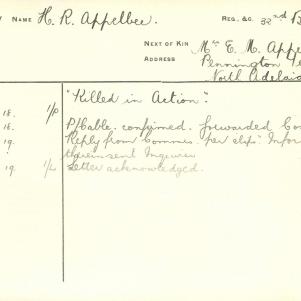 Y NAME H. R. Appelbee. REG. &C. 32nd B
NEXT OF KIN Mrs E. M. Appe
ADDRESS Pennington
North Adelaid
"Killed in Action".
18. 1/P
18. P/Cable. confirmed. forwarded Co
19. Reply from Commins. per clip: Infor
sent
19. 1/L Letter acknowledged.